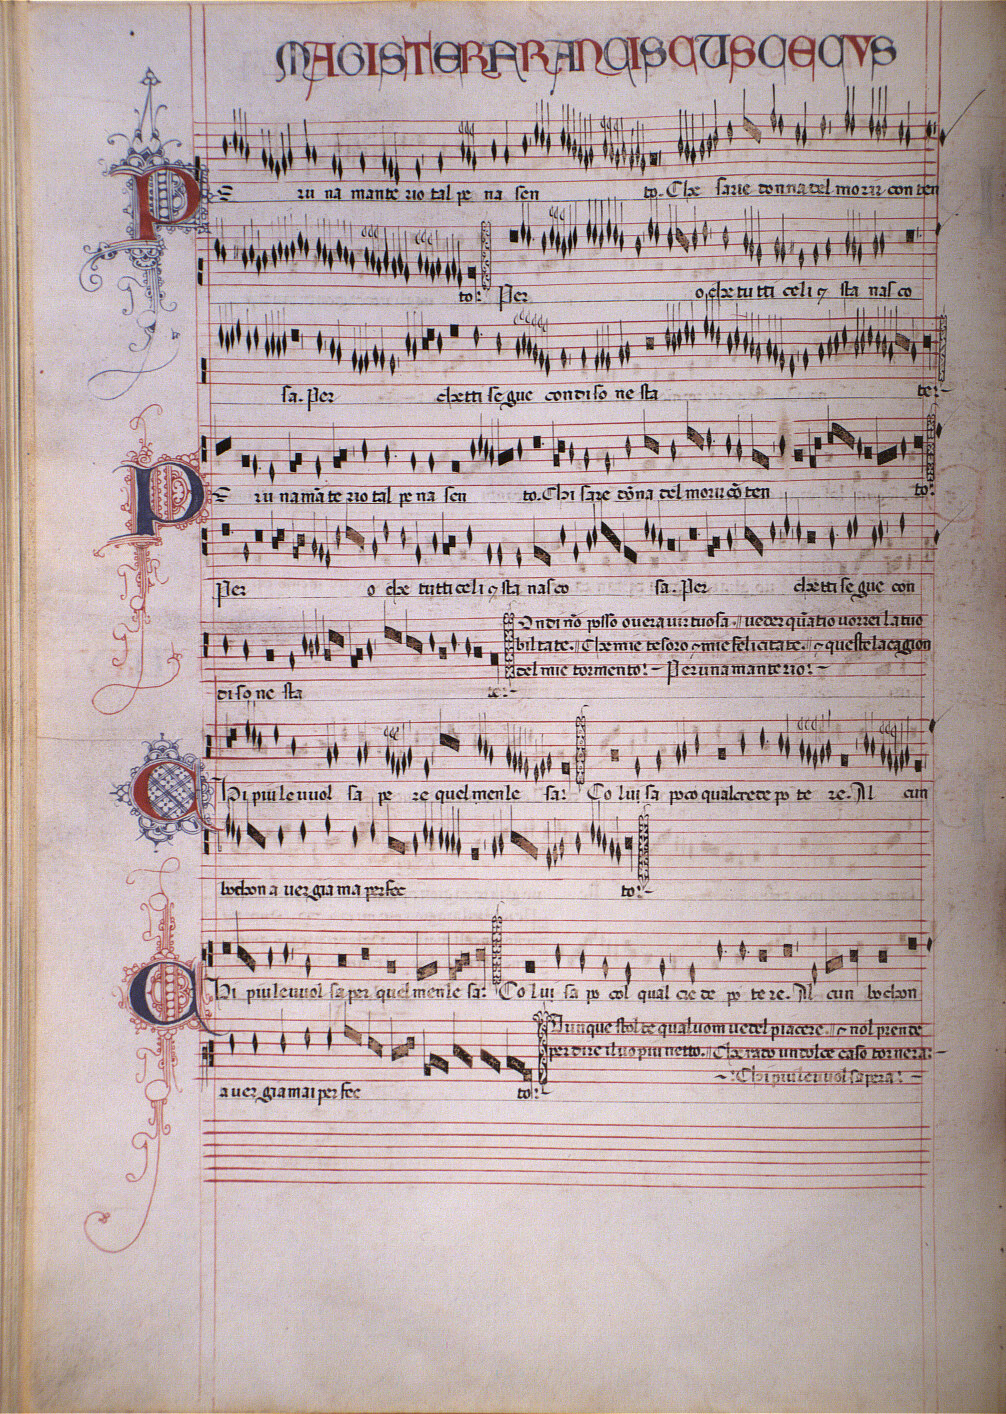 MAGISTER FRANCISCUS CECVS
PE ru na mante rio tal pe na sen to. Che farie donna del morir con ten
to: Per o che tu tti celi ⁊ sta nas co
sa. Per chetti se gue con di so ne sta te:
PE ru na mā te rio tal pe na sen to. Chi fare dōna del morir cō ten to:
Per o che tutti celi ⁊ sta nas co sa. Per chetti se gue con
Ondi nō posso o vera virtuosa. veder quāt io vorrei la tuo
biltate. Che mie tesoro ⁊ mie felicitate. ⁊ queste la cagion
del mie tormento: Per una mante rio:
di so ne sta te:
CHi piu le vuol sa pe re quel men le sa: Co lui sa poco qual crede po te re. Al cun
bochon a ver gia ma perfec to:
CHi piu le vuol sa per quel men le sa: Co lui sa po col qual cre de po te re. Al cun bochon
Dunque stolto qual vom vedel piacere. ⁊ nol prende
per dire il vo piu netto. Che rado un dolce caso tornera:
Chi piu le vuol sapera:
a ver gia mai per fec to: